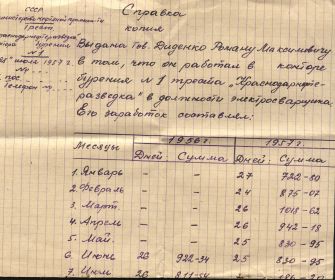 СССР
Министерство нефтяной промышл-ти
Трест
"Краснодарнефтеразведка"
бурения
№1
июля 1957 г.
№
пос.
Телефон №
Справка
копия
Выдана тов. Диденко Роману Максимовичу
в том, что он работал в конторе
бурения №1 треста „Краснодарнефте-
разведка" в должности электросварщика
Его заработок составляет:
Месяцы 1956г. 1957г.
Дней: Сумма Дней: Сумма
1. Январь - - 27 722-80
2. Февраль - - 24 875-07
3. Март. - - 26 1018-62
4. Апрель - - 26 942-18
5. Май. - - 25 830-95
6. Июнь 26 922-34 25 830-95
7. Июль 26 811-54